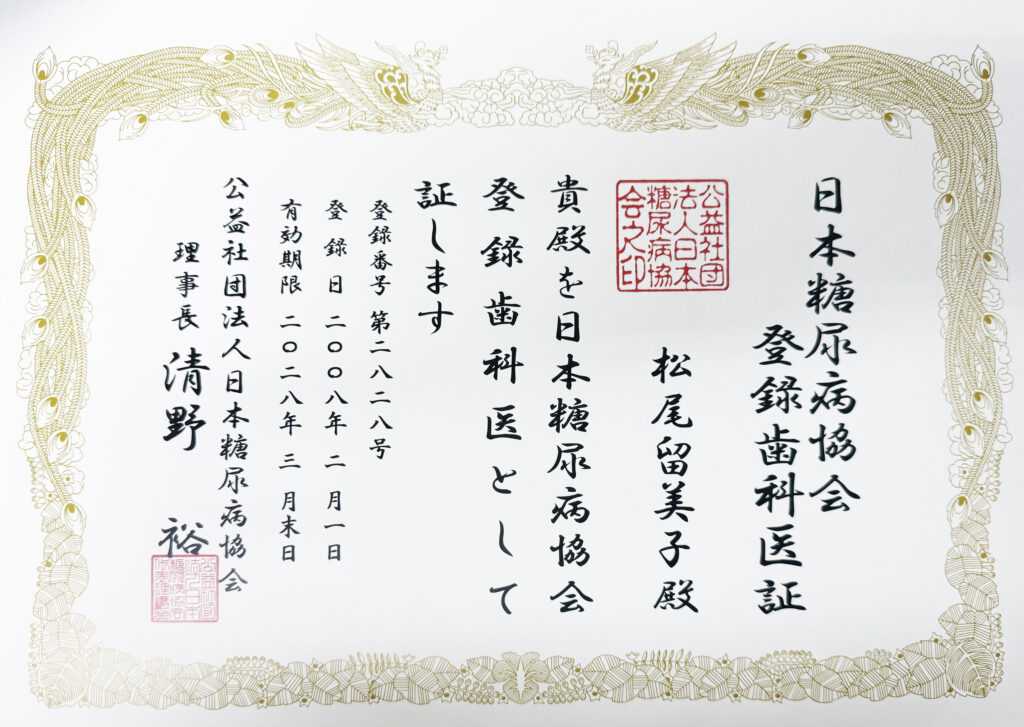 日本糖尿病協会
登録歯科医証
公益社団
法人日本
糖尿病協
会之印
松尾留美子殿
貴殿を日本糖尿病協会
登録歯科医として
証します
登録番号 第二八二八号
登録日 二〇〇八年 二月一日
有効期限 二〇二八年 三月末日
公益社団法人日本糖尿病協会
理事長 清野 裕